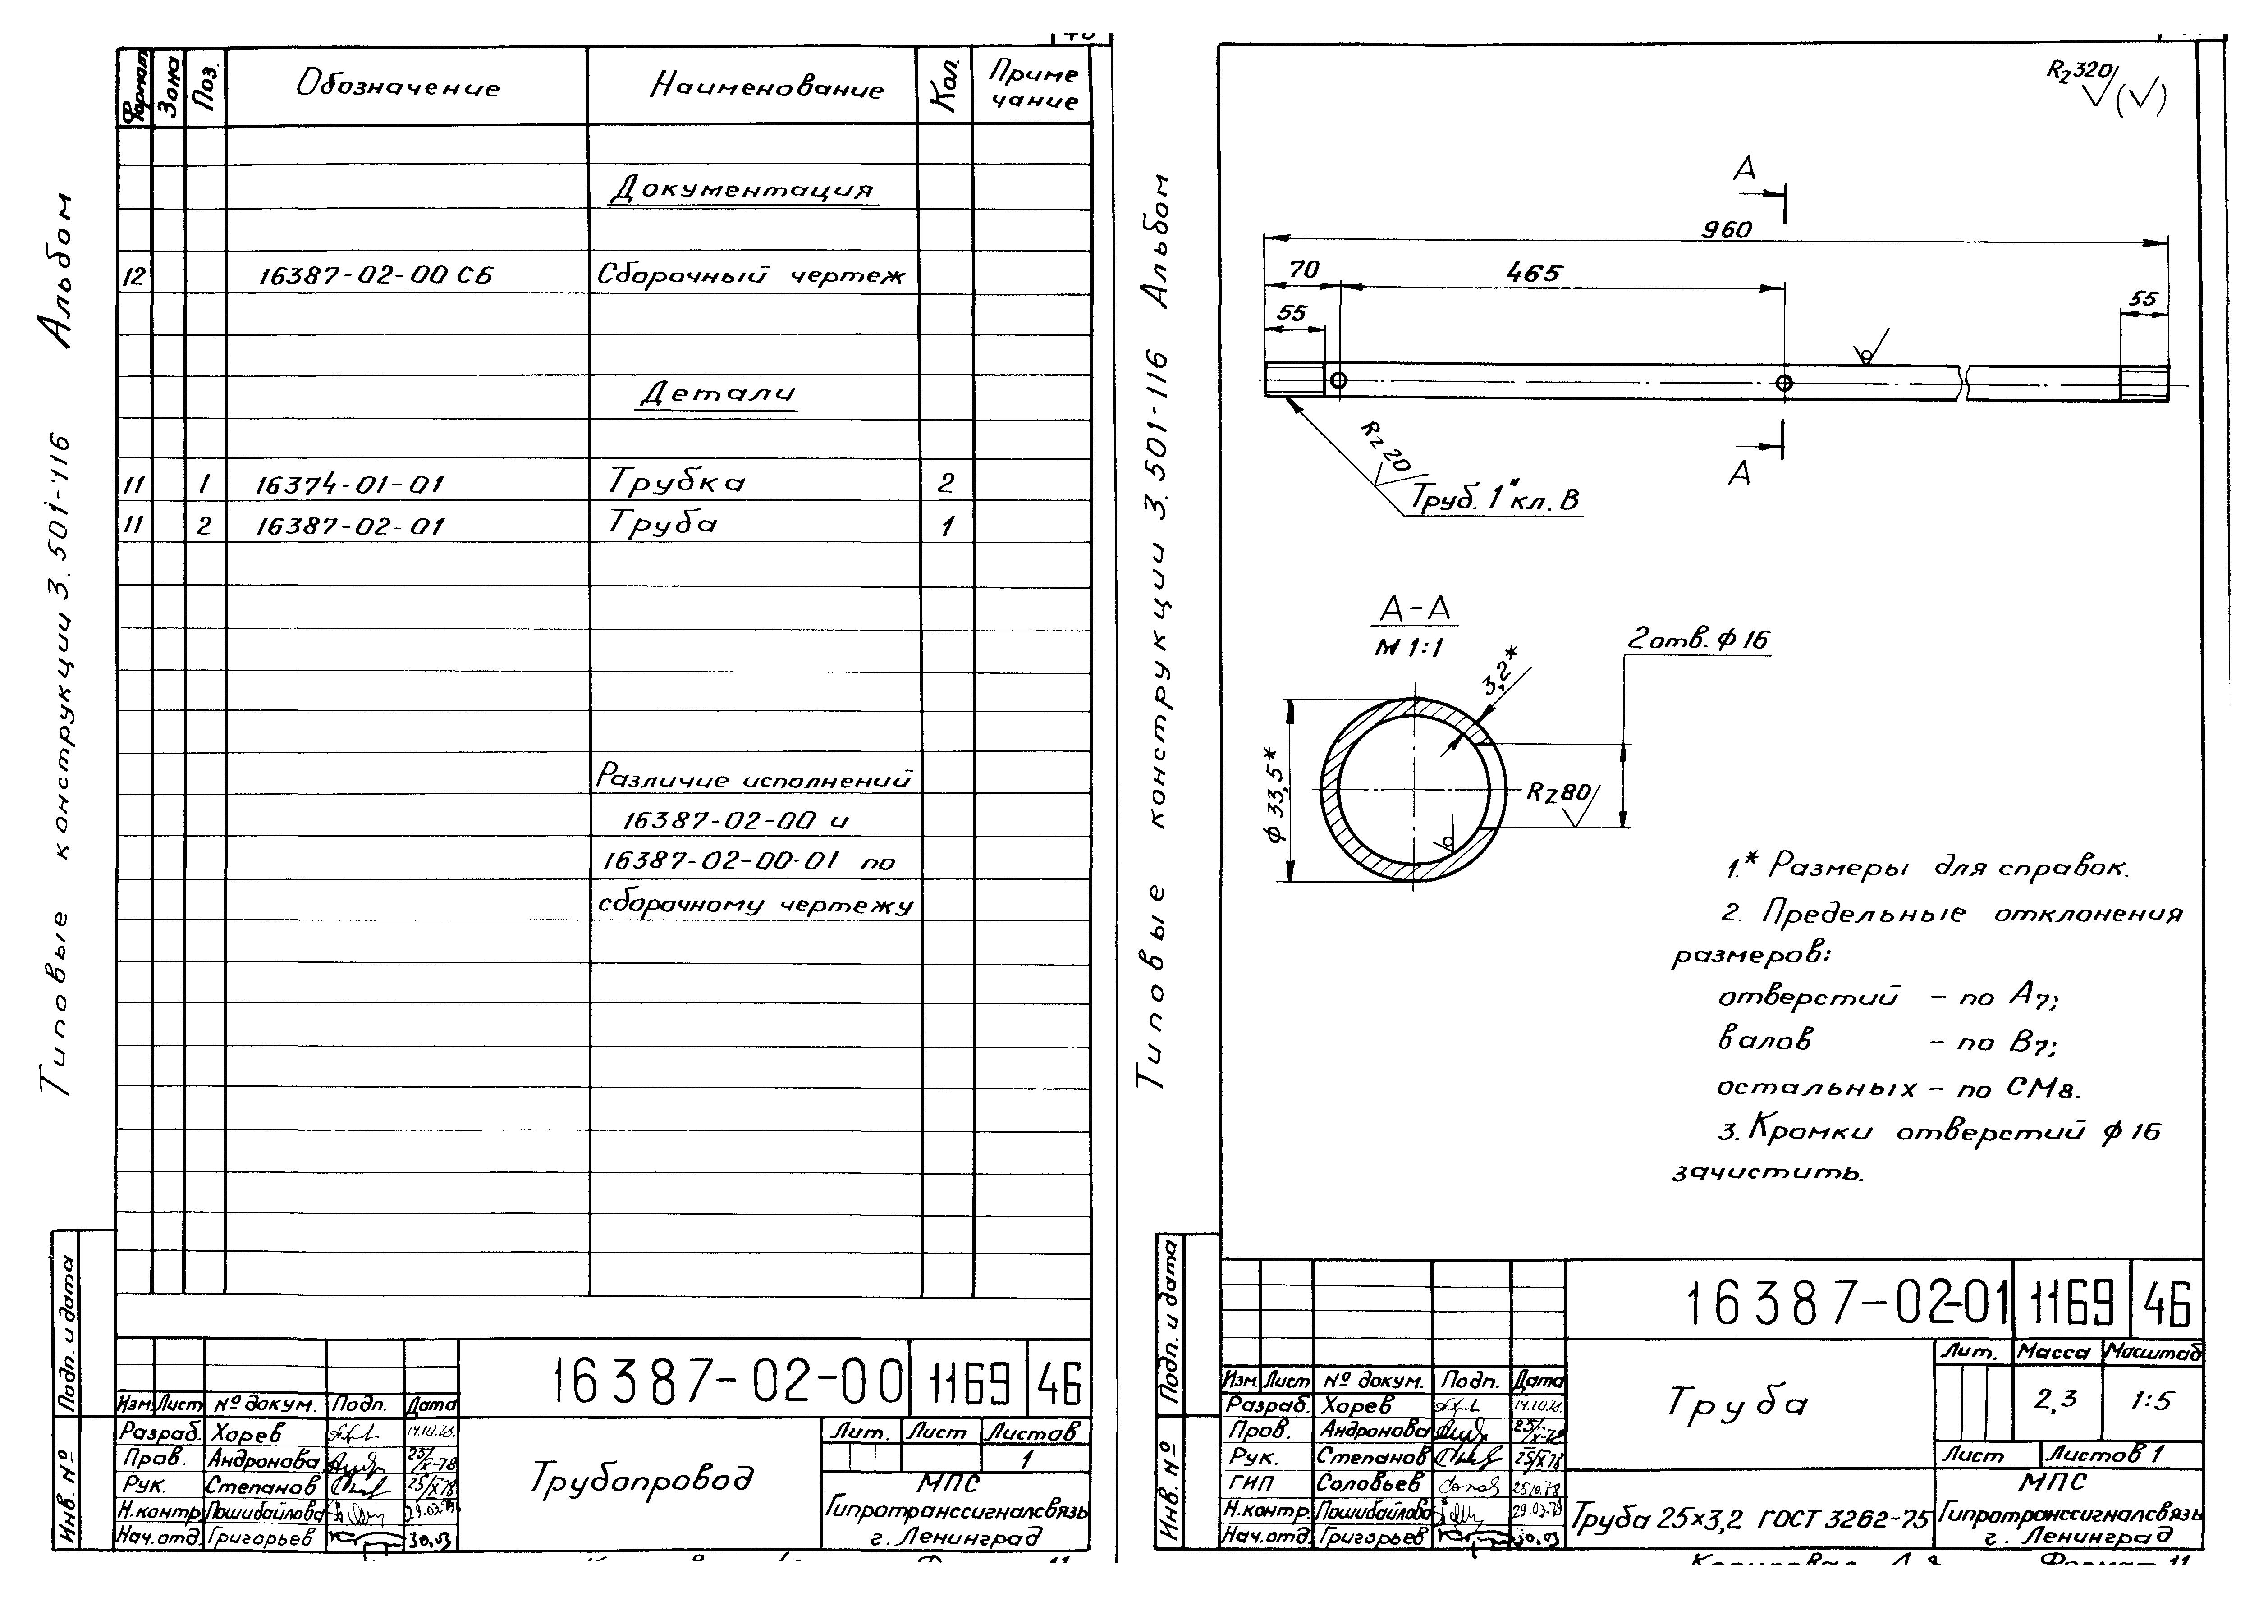 Типовые конструкции 3.501-116 Альбом
Формат Зона Поз. Обозначение Наименование Кол. Приме
чание
Документация
12 16387-02-00 СБ Сборочный чертеж
Детали
11 1 16374-01-01 Трубка 2
11 2 16387-02-01 Труба 1
Различие исполнений
16387-02-00 и
16387-02-00-01 по
сборочному чертежу
Подп. и дата
Инв. №
16387-02-00 1169 46
Изм. Лист № докум. Подп. Дата
Разраб. Хорев 14.10.78.
Пров. Андронова 25/X-78
Рук. Степанов 25/X 78
Н.контр. Пошибайлова 29.03.79
Нач.отд. Григорьев 30.03
Трубопровод
Лит. Лист Листов
1
МПС
Гипротранссигналсвязь
г. Ленинград
Типовые конструкции 3.501-116 Альбом
Rz320 (√)
А
960
70 465
55 55
Rz20
Труб. 1" кл. В
А
А-А
М 1:1
2 отв. ф 16
3,2*
ф 33,5*
Rz80
1.* Размеры для справок.
2. Предельные отклонения
размеров:
отверстий - по А7;
валов - по В7;
остальных - по СМ8.
3. Кромки отверстий ф 16
зачистить.
Подп. и дата
Инв. №
16387-02-01 1169 46
Изм. Лист № докум. Подп. Дата
Разраб. Хорев 14.10.78.
Пров. Андронова 25/X-78
Рук. Степанов 25/X 78
ГИП Соловьев 25.10.78
Н.контр. Пошибайлова 29.03.79
Нач.отд. Григорьев 30.03
Труба
Лит. Масса Масштаб
2,3 1:5
Лист Листов 1
Труба 25х3,2 ГОСТ 3262-75
МПС
Гипротранссигналсвязь
г. Ленинград
Формат 11